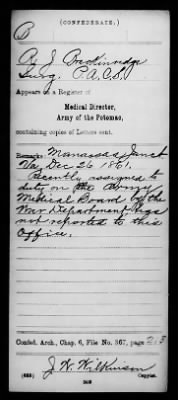 (CONFEDERATE.)
B
R. J. Breckinridge
Surg. P.A.C.S.
Appears on a Register of
Medical Director,
Army of the Potomac,
containing copies of Letters sent.
Remarks: Manassas Junct
Va, Dec 26, 1861.
Recently assigned to
duty on the Army
Medical Board by the
War Department. Has
not reported to this
Office.
Confed. Arch., Chap. 6, File No. 367, page 213
J. W. Wilkinson
Copyist.